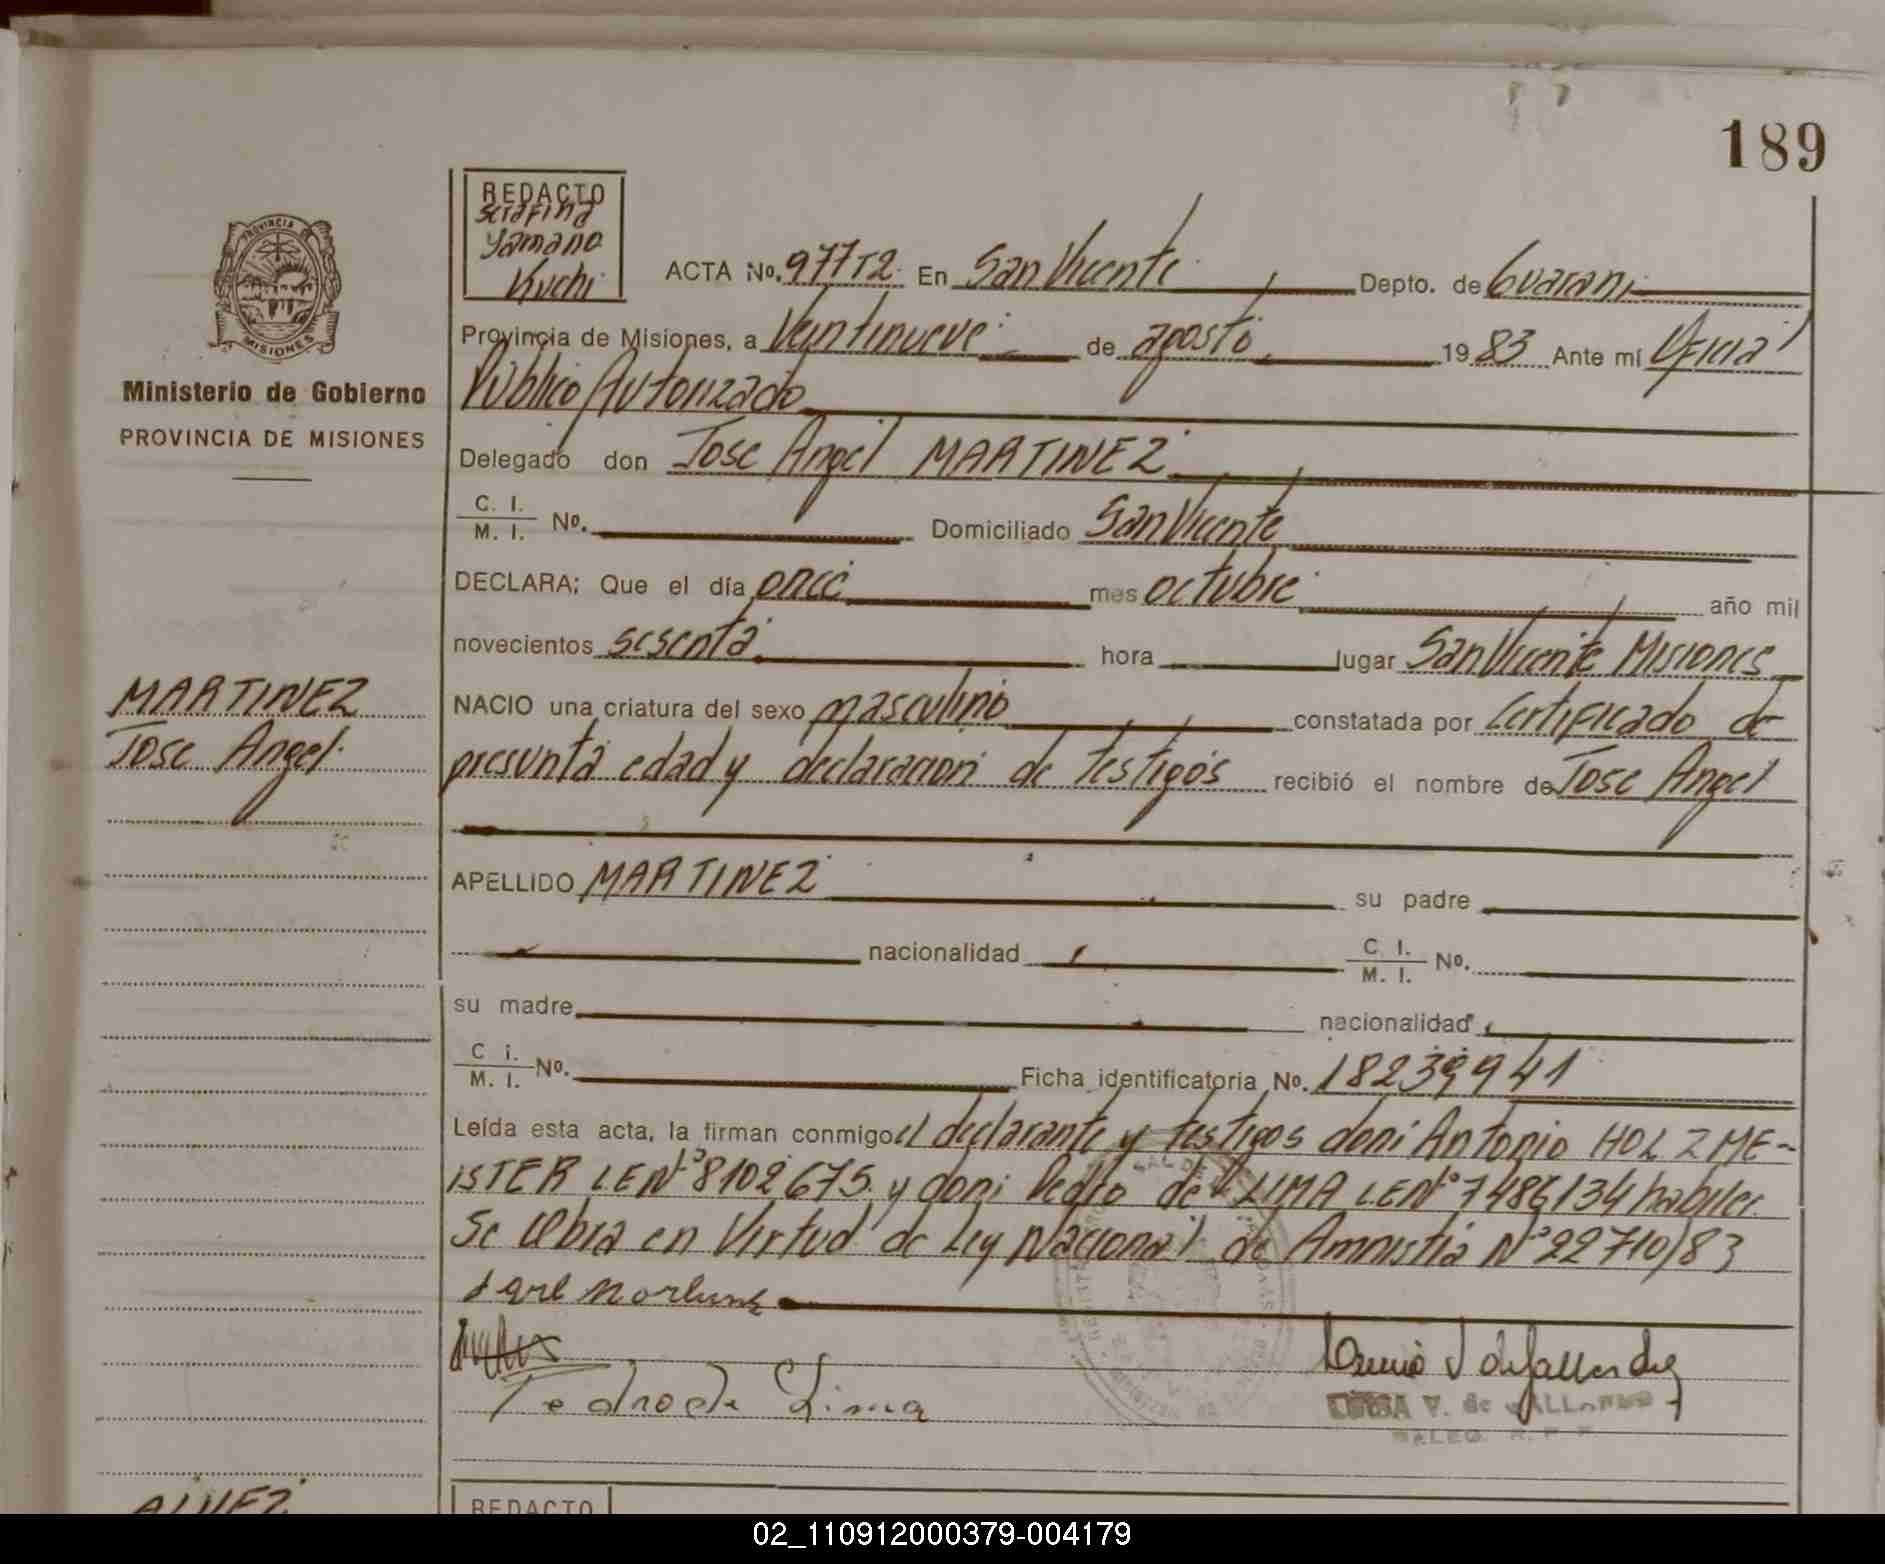 189
REDACTO
Serafina
Yamana
Kuchi
PROVINCIA DE
MISIONES
ACTA No. 977T2. En San Vicente Depto. de Guarani
Provincia de Misiones, a Veintinueve de agosto 1983 Ante mí Oficial
Público Autorizado
Ministerio de Gobierno
PROVINCIA DE MISIONES
Delegado don Jose Angel MARTINEZ
C. I.
M. I. No. Domiciliado San Vicente
DECLARA; Que el día once mes octubre año mil
novecientos sesenta hora lugar San Vicente Misiones
MARTINEZ
Jose Angel
NACIO una criatura del sexo masculino constatada por Certificado de
presunta edad y declaracion de testigos recibió el nombre de Jose Angel
APELLIDO MARTINEZ su padre
nacionalidad C. I.
M. I. No.
su madre nacionalidad
C i.
M. I. No. Ficha identificatoria No. 18239941
Leída esta acta, la firman conmigo el declarante y testigos don: Antonio HOLZME-
ISTER LE Nº 8102675 y don: Pedro de LIMA LE Nº 7486134 habiles.
Se labra en Virtud de Ley Nacional de Amnistia Nº 22710/83
Pedro de Lima
V. de
ALVEZ
REDACTO
02_110912000379-004179